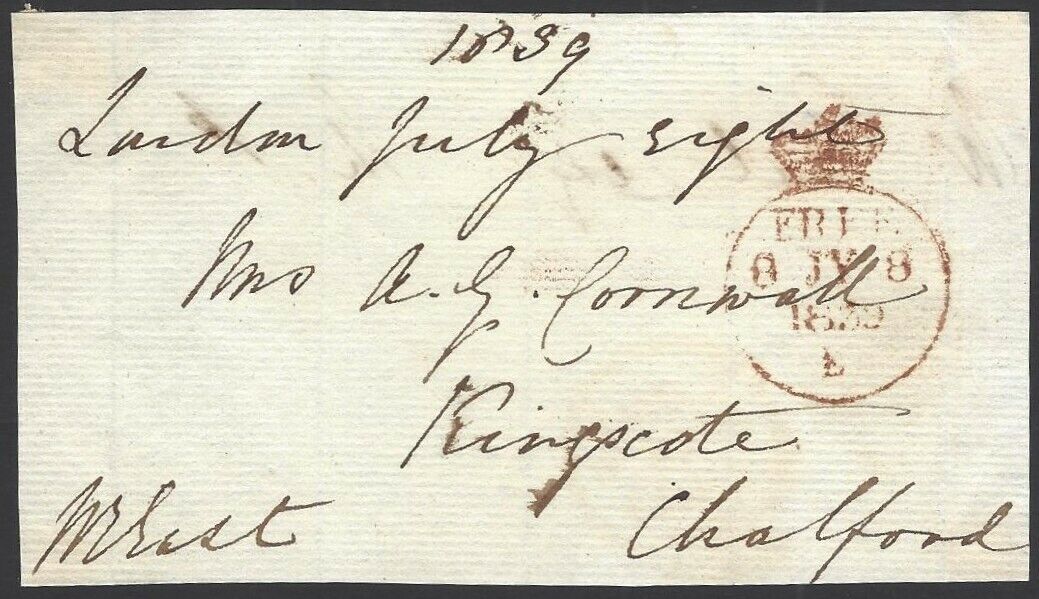 1839
London July eight
Mrs A. G. Cornwall
Kingscote
Chalford
FREE
8 JY 8
1839